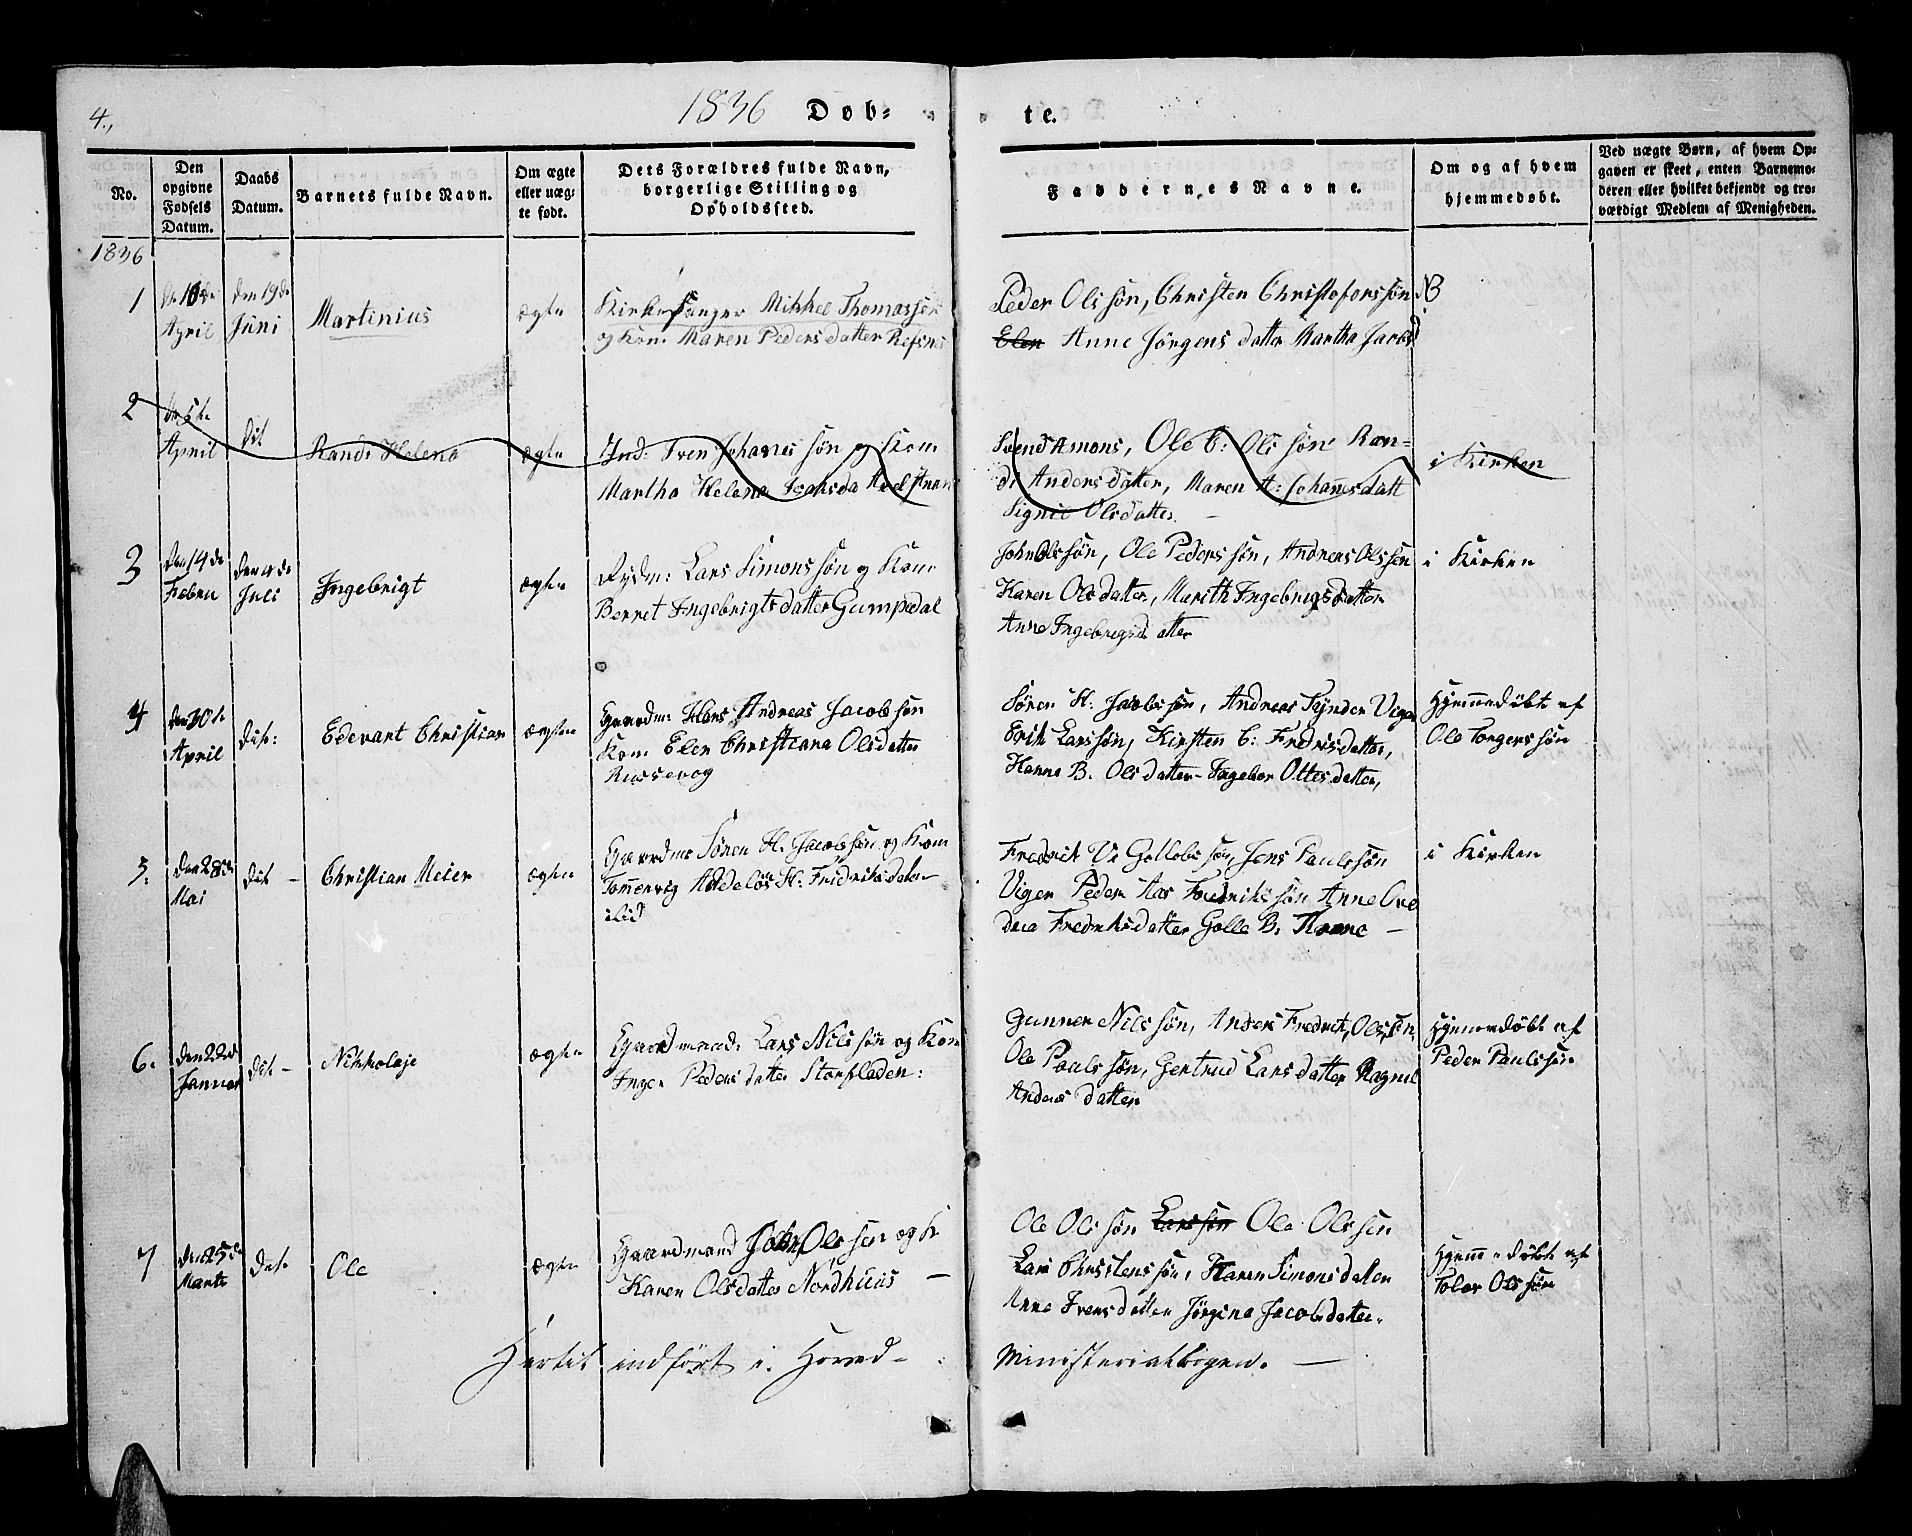 4.,
1836 Døb=
te.
No.
Den opgivne Fødsels Datum.
Daabs Datum.
Barnets fulde Navn.
Om ægte eller uæg- te født.
Dets Forældres fulde Navn, borgerlige Stilling og Opholdssted.
Faddernes Navne.
Om og af hvem hjemmedøbt.
Ved uægte Børn, af hvem Op= gaven er skeet, enten Barnemo= deren eller hvilket bekjendt og tro= værdigt Medlem af Menigheden.
1836
1
April
den 19de
Juni
Martinius
ægte
Kirkesanger Mikkel Thomassen
og Kon. Maren Pedersdatter Refsnes
Peder Olssøn, Christen Christofersøn
Elen Anne Jørgensdatter Martha Jacobsd
2
April
dit
Randi Helena
ægte
Ind: Iven Johanessøn og Kon.
Martha Helena
Svend Amons, Ole C: Olssøn Ran=
di Andersdatter, Maren A: Johannesdatt
Signil Olsdatter.
i Kirken
3
Den 14de
Febru
den 4de
Juli
Ingebrigt
ægte
Rydm: Lars Simonssøn og Kon.
Berret Ingebrigtsdatter Gumpedal
John Olssøn, Ole Pederssøn, Andreas Olssøn
Karen Olsdatter, Marith Ingebrigsdatter
Anne Ingebrigsdatter
i Kirken
4
den 30te
April
dit:
Edevart Christian
ægte
Gaardm: Hans Andreas Jacobsøn
Kon. Elen Christiana Olsdatter
Russevog
Søren H. Jacobssøn, Andreas
Erik Larssøn, Kirsten C: Fredrisdatter,
Hanna B. Olsdatter Ingebor Ottesdatter,
Hjemmedøbt af
Ole Torgerssøn
5.
den 28de
Mai
dit -
Christian Meier
ægte
Gaardm: Søren H. Jacobssøn og Kon
Tommervig H: Fridriksdater
Fredrik Gollobssøn, Jens Paulssøn
Viger Peder Aas Fredrikssøn Anne
Fredriksdatter Golle B. Hanne -
i Kirken
6.
den 22de
Januar
dit -
Nikkolaje
ægte
Gaardmand: Lars Nilssøn og Kon
Inger Pedersdatter Storfladen:
Gunner Nilssøn, Anders Fredrik Olssøn,
Ole Paulssøn, Gertrud Larsdatter Ragnil
Anders datter
Hjemmedøbt af
Peder Paulssøn
7
den 25de
Marts
dit.
Ole
ægte
Gaardmand John Olssen og K
Karen Olsdatter Nordhuus -
Ole Olssøn Larssøn Ole Olssen
Lars Christenssøn, Karen Simonsdater
Anne Iversdatter Jørgina Jacobsdatter.
Hjemmedøbt af
Tolar Olssøn
Hertil indført i Hoved= Ministerialbogen. -